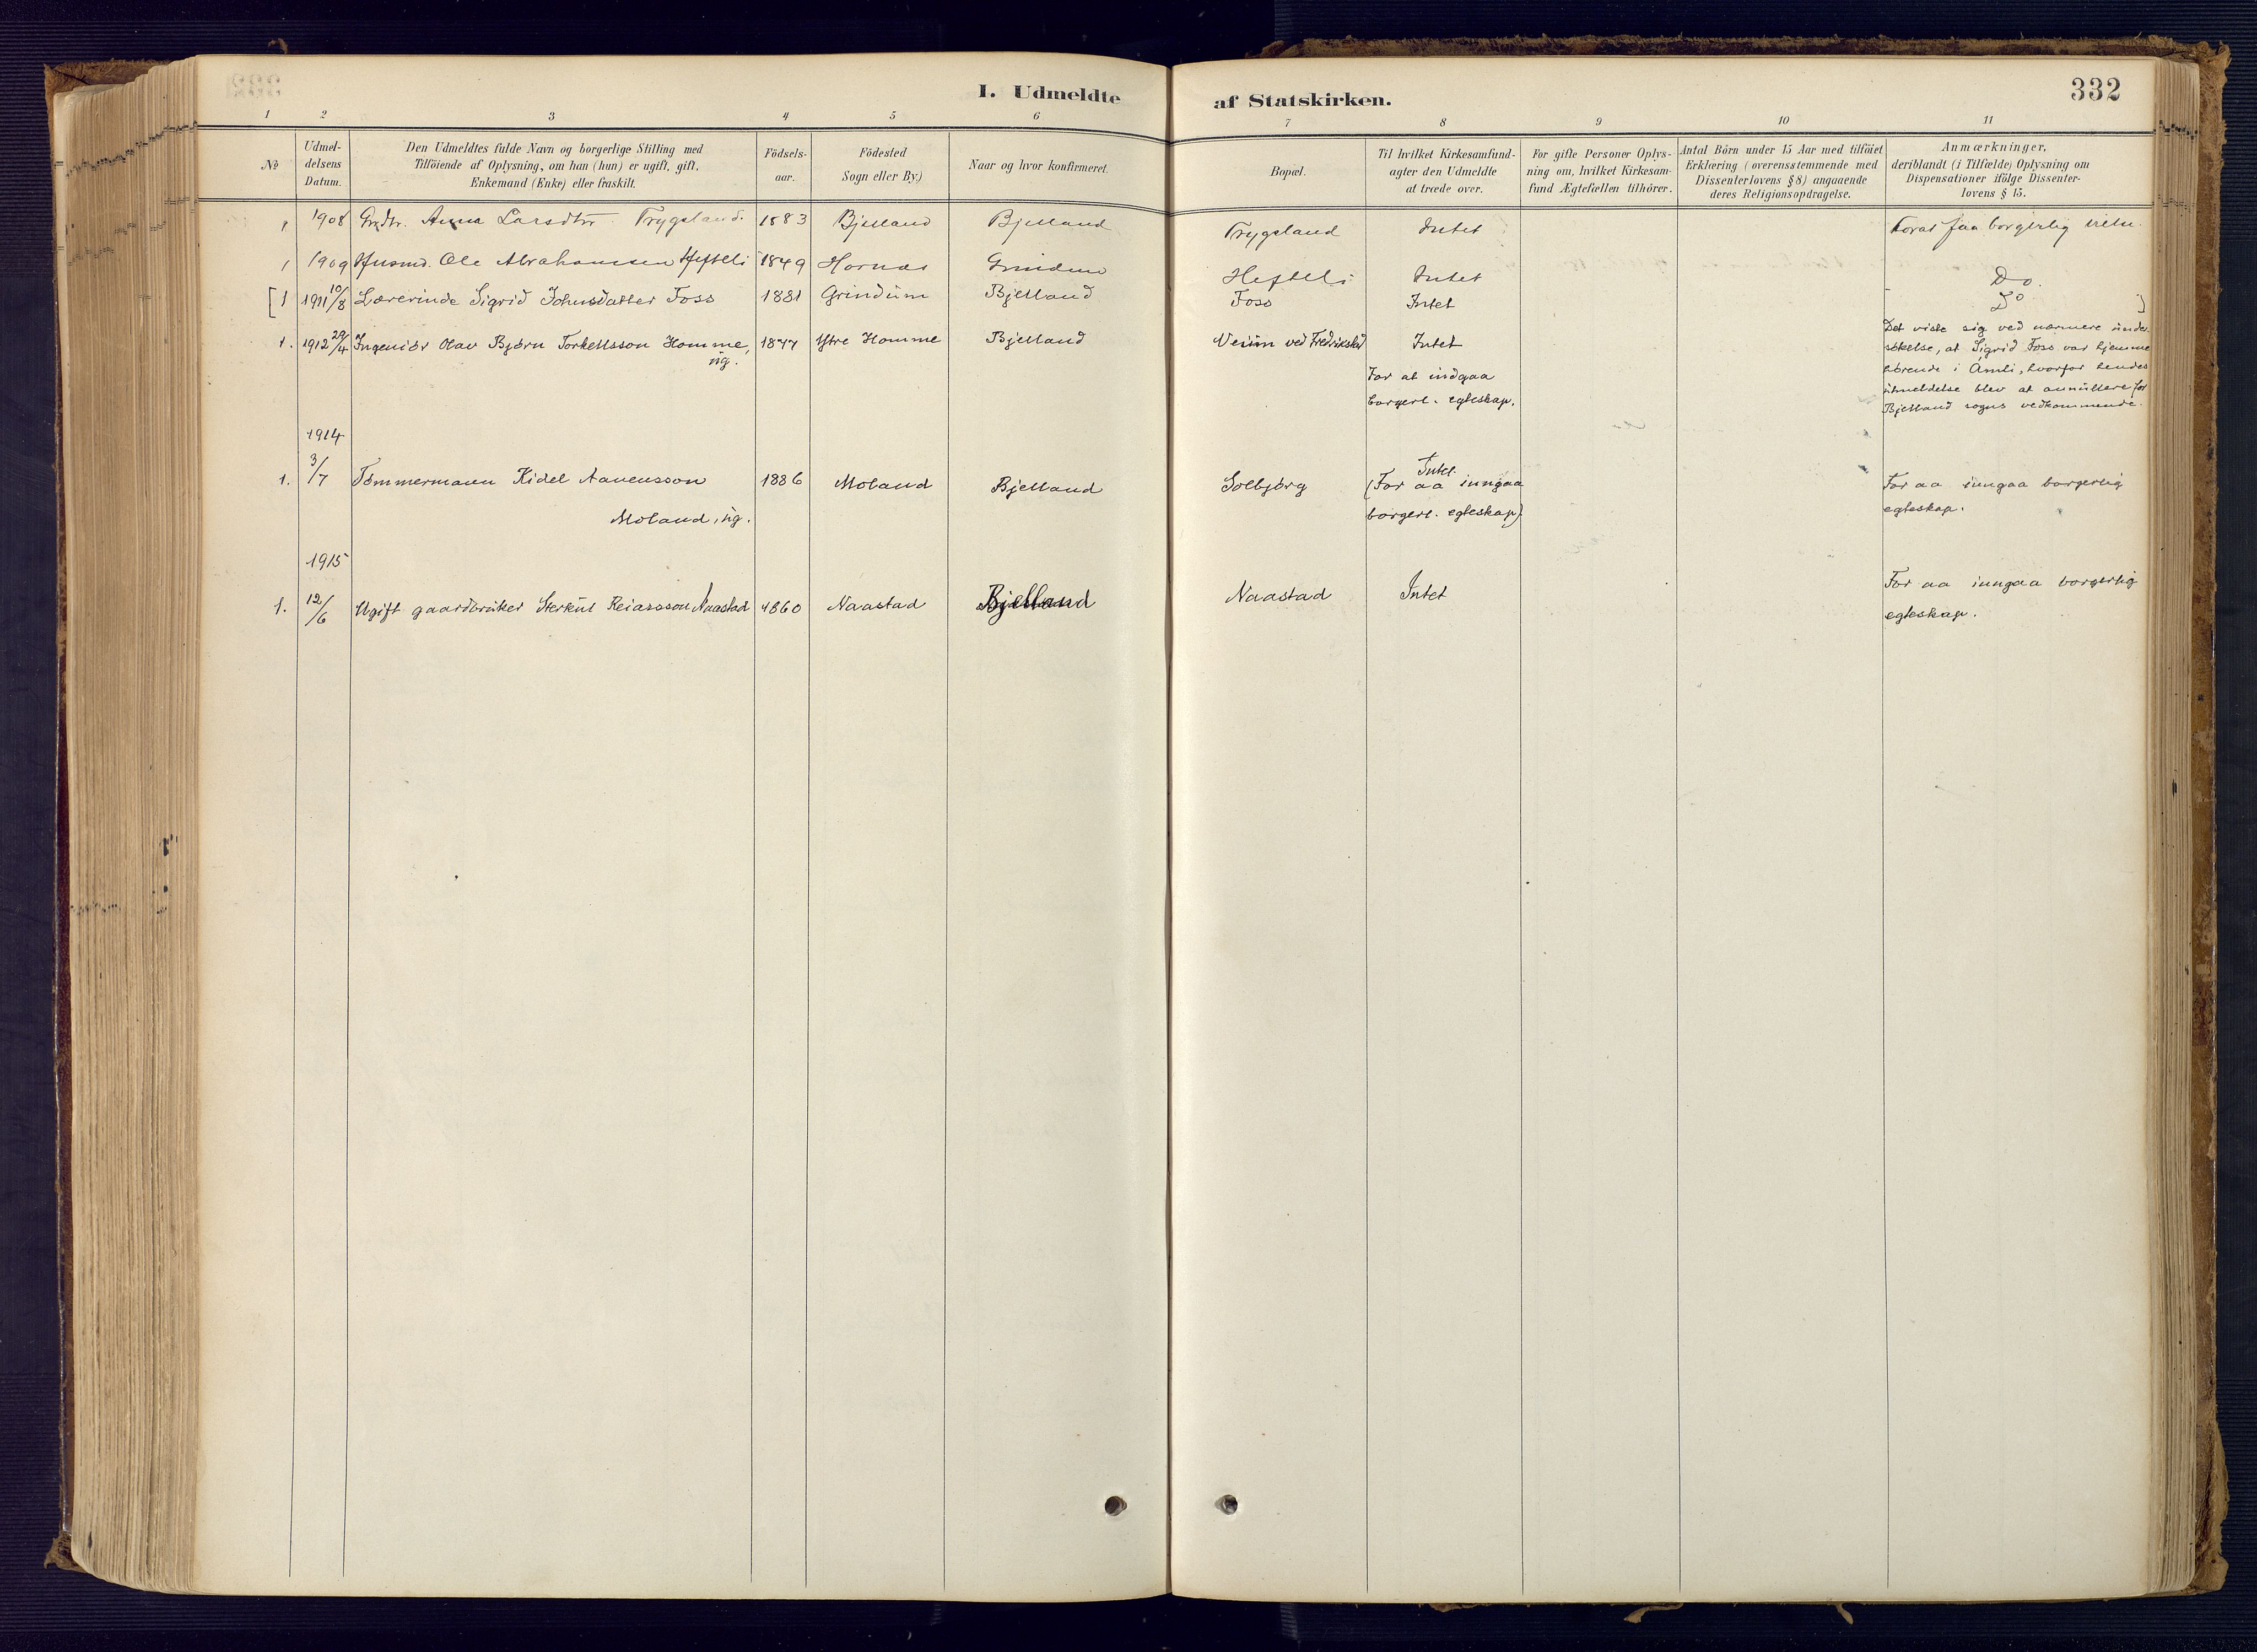 I. Udmeldte af Statskirken.
332
1 2 3 4 5 6 7 8 9 10 11
No
Udmel-
delsens
Datum.
Den Udmeldtes fulde Navn og borgerlige Stilling med
Tilföiende af Oplysning, om han (hun) er ugift, gift,
Enkemand (Enke) eller fraskilt.
Födsels-
aar.
Födested
Sogn eller By.)
Naar og hvor konfirmeret.
Bopæl.
Til hvilket Kirkesamfund-
agter den Udmeldte
at træde over.
For gifte Personer Oplys-
ning om, hvilket Kirkesam-
fund Ægtefællen tilhörer.
Antal Börn under 15 Aar med tilföiet
Erklæring (overensstemmende med
Dissenterlovens § 8) angaaende
deres Religionsopdragelse.
Anmærkninger,
deriblandt (i Tilfælde) Oplysning om
Dispensationer ifölge Dissenter-
lovens § 15.
1 1908 Grdtr. Anna Larsdtr Trygsland. 1883 Bjelland Bjelland Trygsland Intet foraf faa borgerlig
1 1909 Husmd. Ole Abrahamsen Hefteli 1849 Hornnes Grindem Hefteli Intet Do.
[1 1911 10/8 Lærerinde Sigrid Johnsdatter Foss 1881 Grindum Bjelland Foss Intet Do ]
1. 1912 29/4 Ingeniör Olav Björn Torkellsson Homme, 1877 Ytre Homme Bjelland Veum ved Fredrikstad Intet
ug.
For at indgaa
borgerl. egteskap.
Det viste sig ved nærmere under-
sökelse, at Sigrid Foss var hjemme
hörende i Åmli, hvorfor hendes
utmeldelse blev at annullere for
Bjelland sogns vedkommende.
1914
1. 3/7 Tömmermann Kidel Aanensson 1886 Moland Bjelland Solbjörg Intet.
Moland, ug.
(For aa inngaa
borgerl. egteskap).
For aa inngaa borgerlig
egteskap.
1915
1. 12/6 Ugift gaardbruker Sterkul Reiarsson Naastad 1860 Naastad Bjelland Naastad Intet
For aa inngaa borgerlig
egteskap.